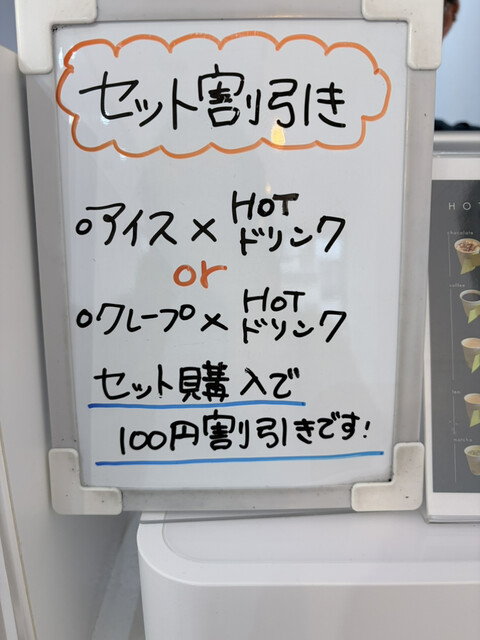 セット割引き
○アイス×HOTドリンク
or
○クレープ×HOTドリンク
セット購入で
100円割引きです!
HOT
chocolate
coffee
tea